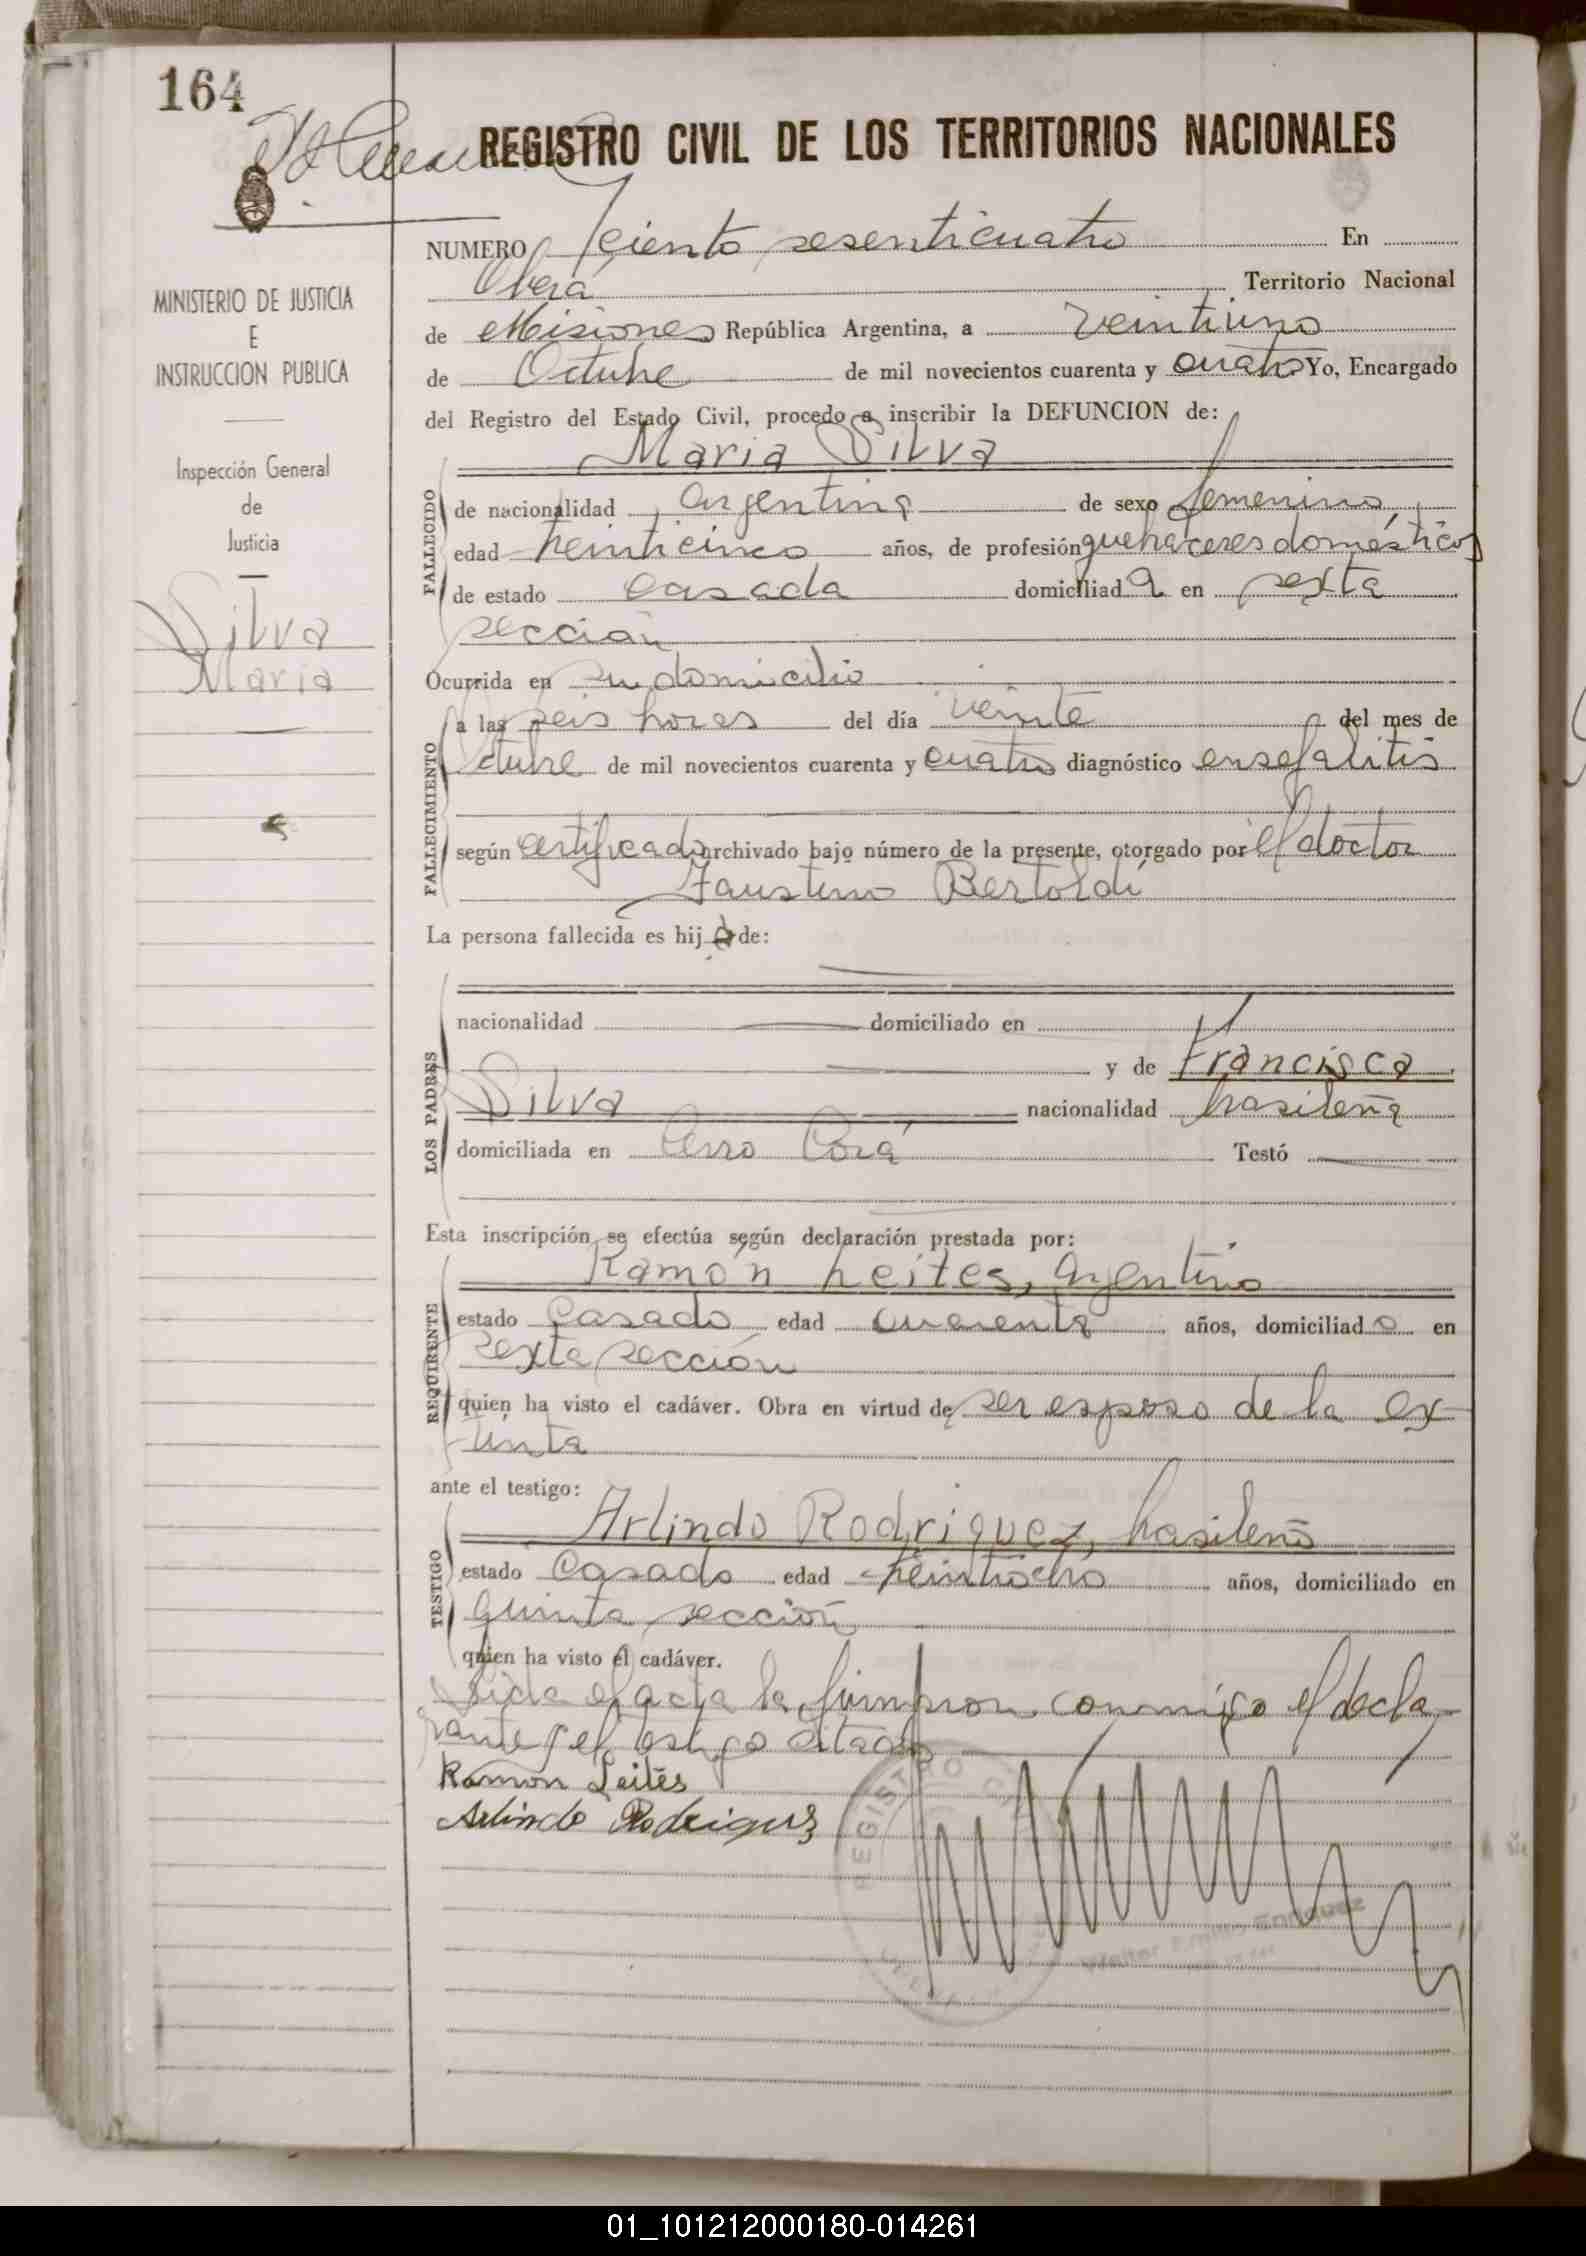 164
REGISTRO CIVIL DE LOS TERRITORIOS NACIONALES
MINISTERIO DE JUSTICIA
E
INSTRUCCION PUBLICA
Inspección General
de
Justicia
Silva
Maria
NUMERO ciento sesenticuatro En
Oberá Territorio Nacional
de Misiones República Argentina, a veintiuno
de Octubre de mil novecientos cuarenta y cuatro Yo, Encargado
del Registro del Estado Civil, procedo a inscribir la DEFUNCION de:
Maria Silva
FALLECIDO
de nacionalidad argentina de sexo femenino,
edad veinticinco años, de profesión quehaceres domésticos
de estado casada domiciliad a en sexta
sección
Ocurrida en su domicilio
FALLECIMIENTO
a las seis horas del día veinte del mes de
Octubre de mil novecientos cuarenta y cuatro diagnóstico ensefalitis
según certificado archivado bajo número de la presente, otorgado por el doctor
Faustino Bertoldi
La persona fallecida es hij a de:
LOS PADRES
nacionalidad domiciliado en
y de Francisca
Silva nacionalidad brasileña
domiciliada en Cerro Corá Testó
Esta inscripción se efectúa según declaración prestada por:
REQUIRENTE
Ramón Leites, argentino
estado casado edad cuarenta años, domiciliad o en
sexta sección
quien ha visto el cadáver. Obra en virtud de ser esposo de la ex-
tinta
ante el testigo:
TESTIGO
Arlindo Rodriguez, brasileño
estado casado edad veintiocho años, domiciliado en
quinta sección
quien ha visto el cadáver.
Leida el acta la firmaron conmigo el decla-
rante y el testigo citado
Ramon Leites
Arlindo Rodriguez
REGISTRO CIVIL
Walter Emilio Enriquez
01_101212000180-014261